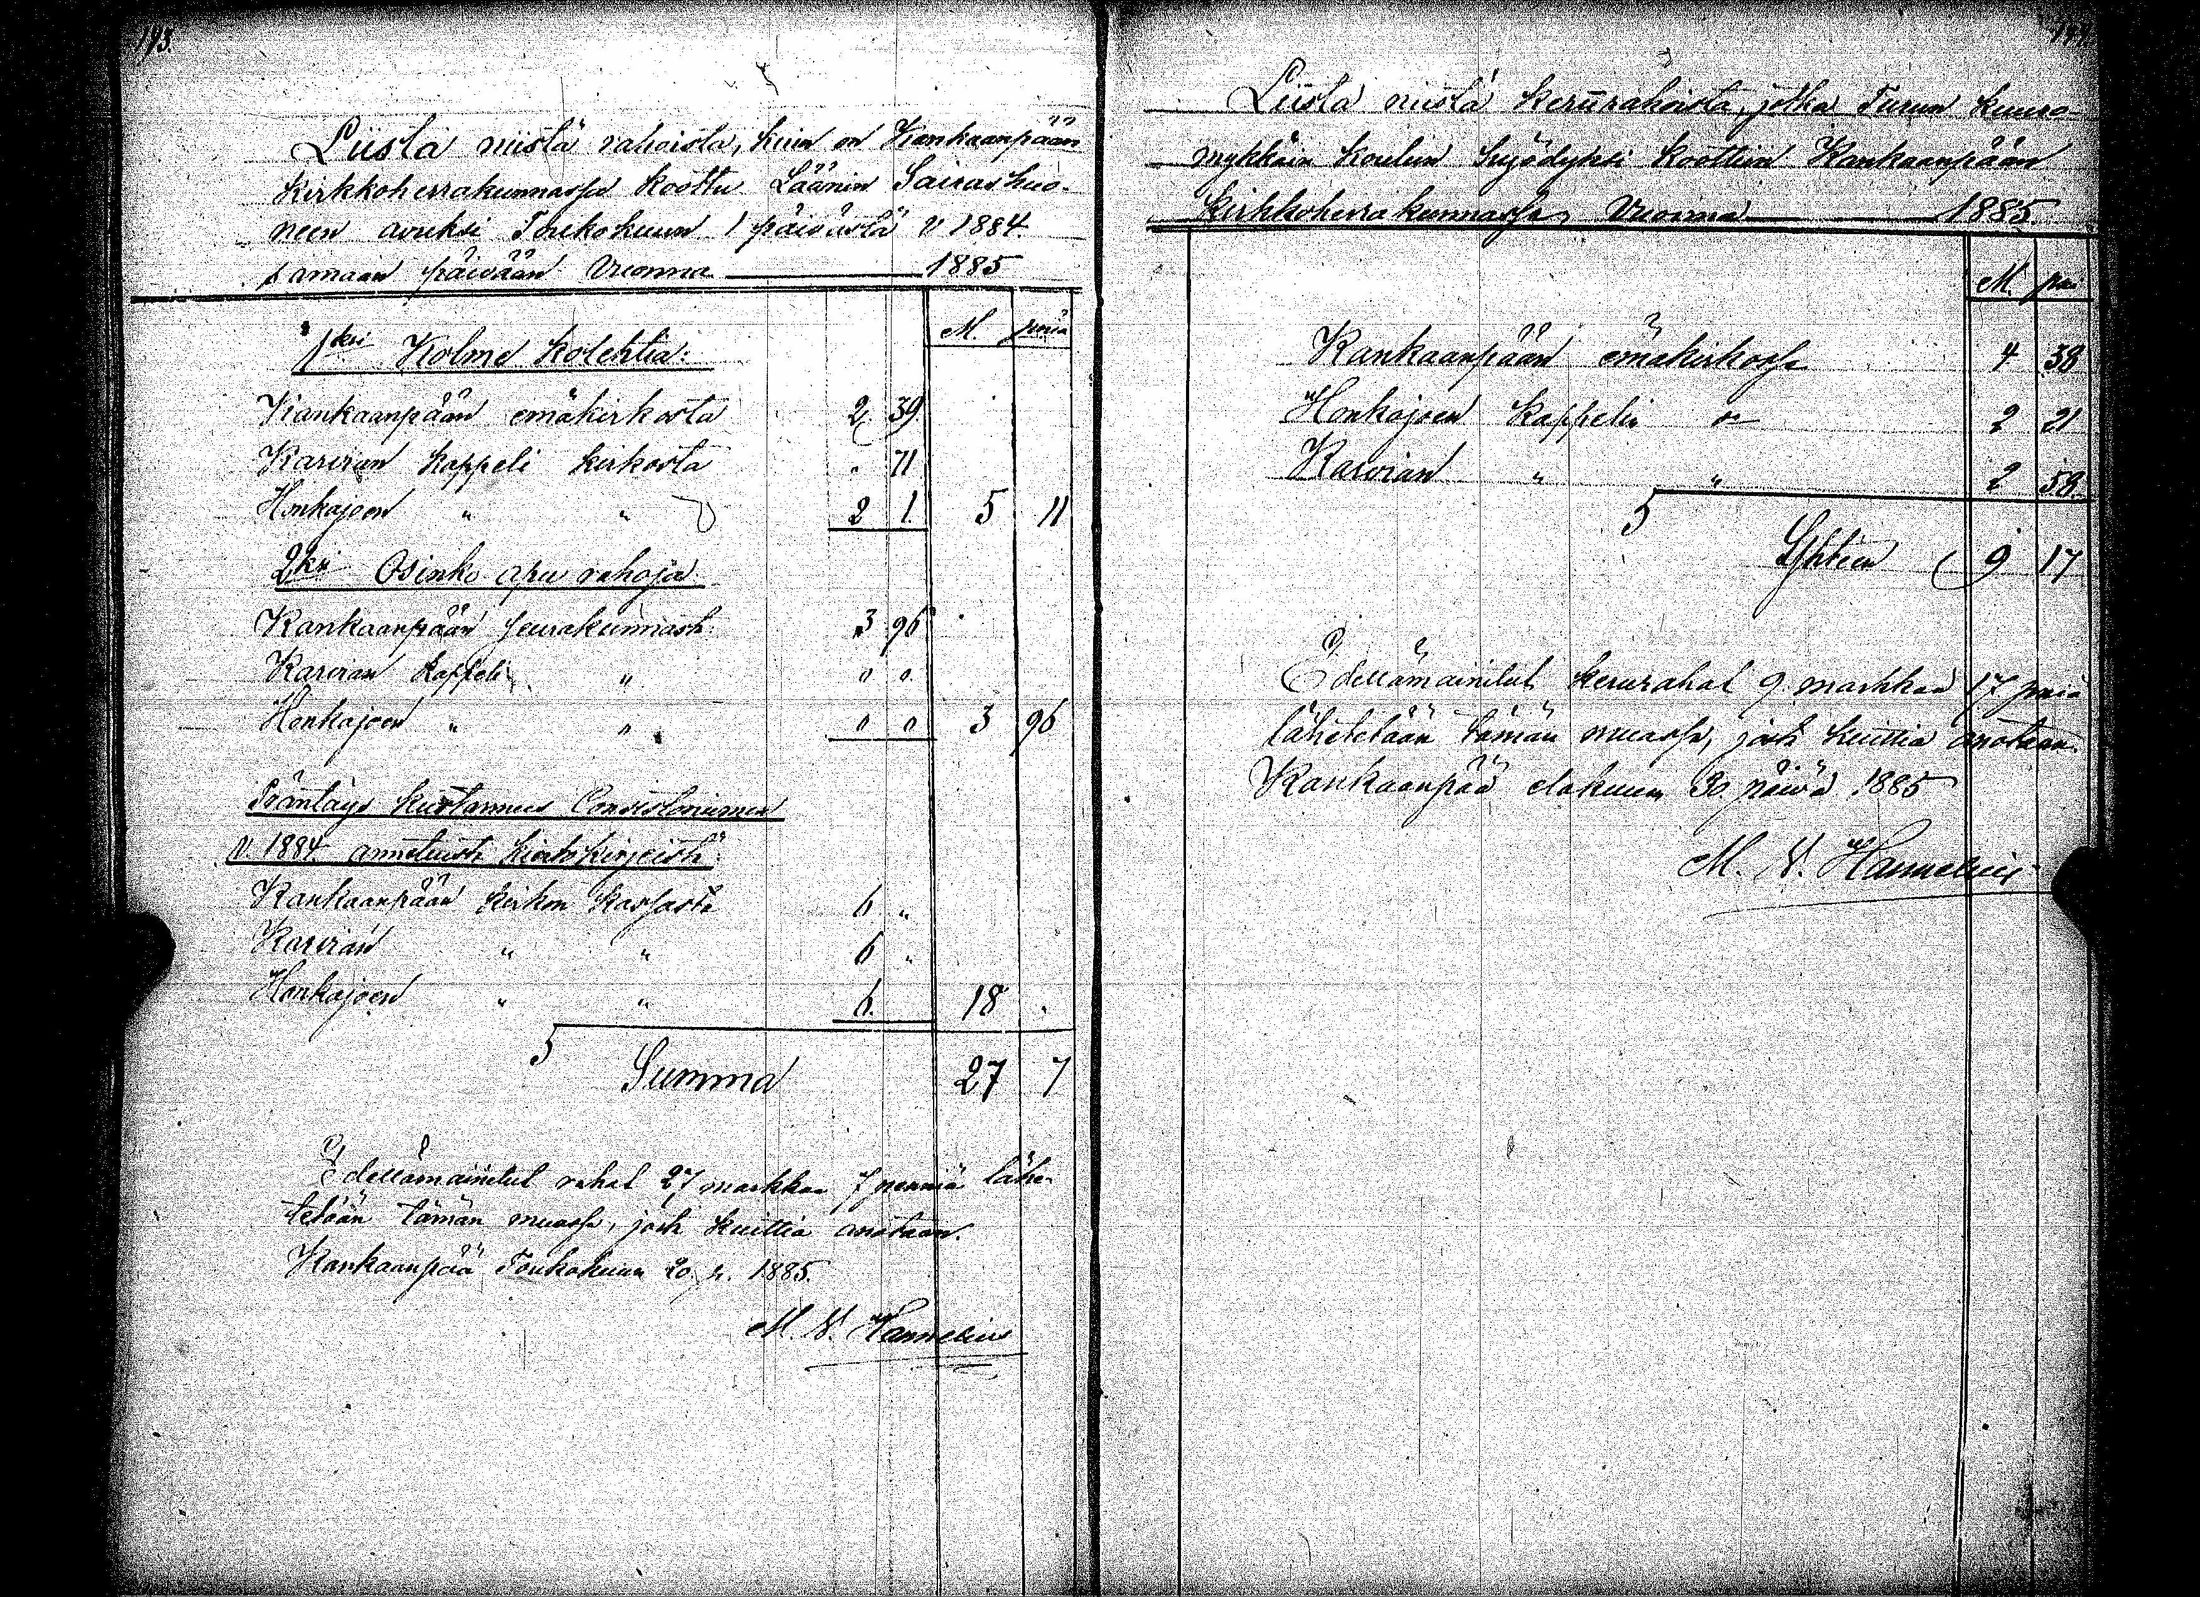 193.
Liista niistä rahoista, kuin on Kankaanpään
Kirkkoherrakunnassa koottu Läänin Sairashuo-
neen avuksi Toukokuun 1 päivästä v 1884
samaan päivään Vuonna 1885
M. penniä
1ksi Kolme kolehtia:
Kankaanpään emäkirkosta 2 39
Karvian kappeli kirkosta " 71
Honkajoen " " 2 1. 5 11
2ksi Osinko apu rahoja
Kankaanpään seurakunnasta 3 96
Karvian kappeli " 0 0
Honkajoen " " 0 0 3 96
Präntäys kustannus Consistoriumin
v. 1884 annetuista kiertokirjeistä
Kankaanpään kirkon kassasta 6 "
Karvian " " 6 "
Honkajoen " " 6. 18 "
Summa 27 7
Edellämainitut rahat 27 markkaa 7 penniä lähe-
tetään tämän muassa, josta kuittia anotaan.
Kankaanpää Toukokuun 20 p. 1885.
M. V. Hannelius
Liista niistä kerurahoista, jotka Turun kuuro-
mykkäin koulun hyödyksi koottiin Kankaanpään
Kirkkoherrakunnassa Vuonna 1885.
M. pnä
Kankaanpään emäkirkossa 4 38
Honkajoen kappeli 2 21
Karvian " " 2 58.
Yhteen 9 17
Edellämainitut kerurahat 9 markkaa 17 pniä
lähetetään tämän muassa, josta kuittia anotaan.
Kankaanpää elokuun 30 päivä 1885
M. V. Hannelius